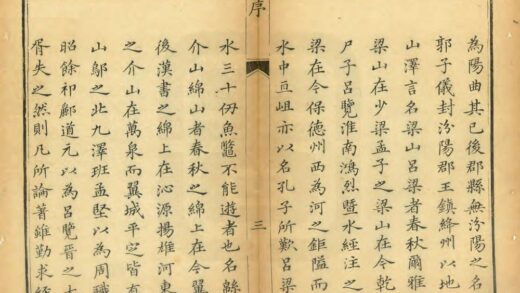 為陽曲其已後郡縣無汾陽之名
郭子儀封汾陽郡王鎮絳州以地
山澤言名梁山呂梁者春秋爾雅
梁山在少梁孟子之梁山在今乾
尸子呂覽淮南鴻烈暨水經注之
梁在今保德州西為河之鉅隘而
水中亘岨亦以名孔子所歎呂梁
序
三
水三十仞魚鼈不能遊者也名緜
介山綿山者春秋之綿上在今翼
後漢書之綿上在沁源揚雄河東
之介山在萬泉而翼城平定皆有
山鄔之北九澤班孟堅以為周職
昭餘祁酈道元以為呂覽晉之大
胥失之然則凡所論著維勤求經